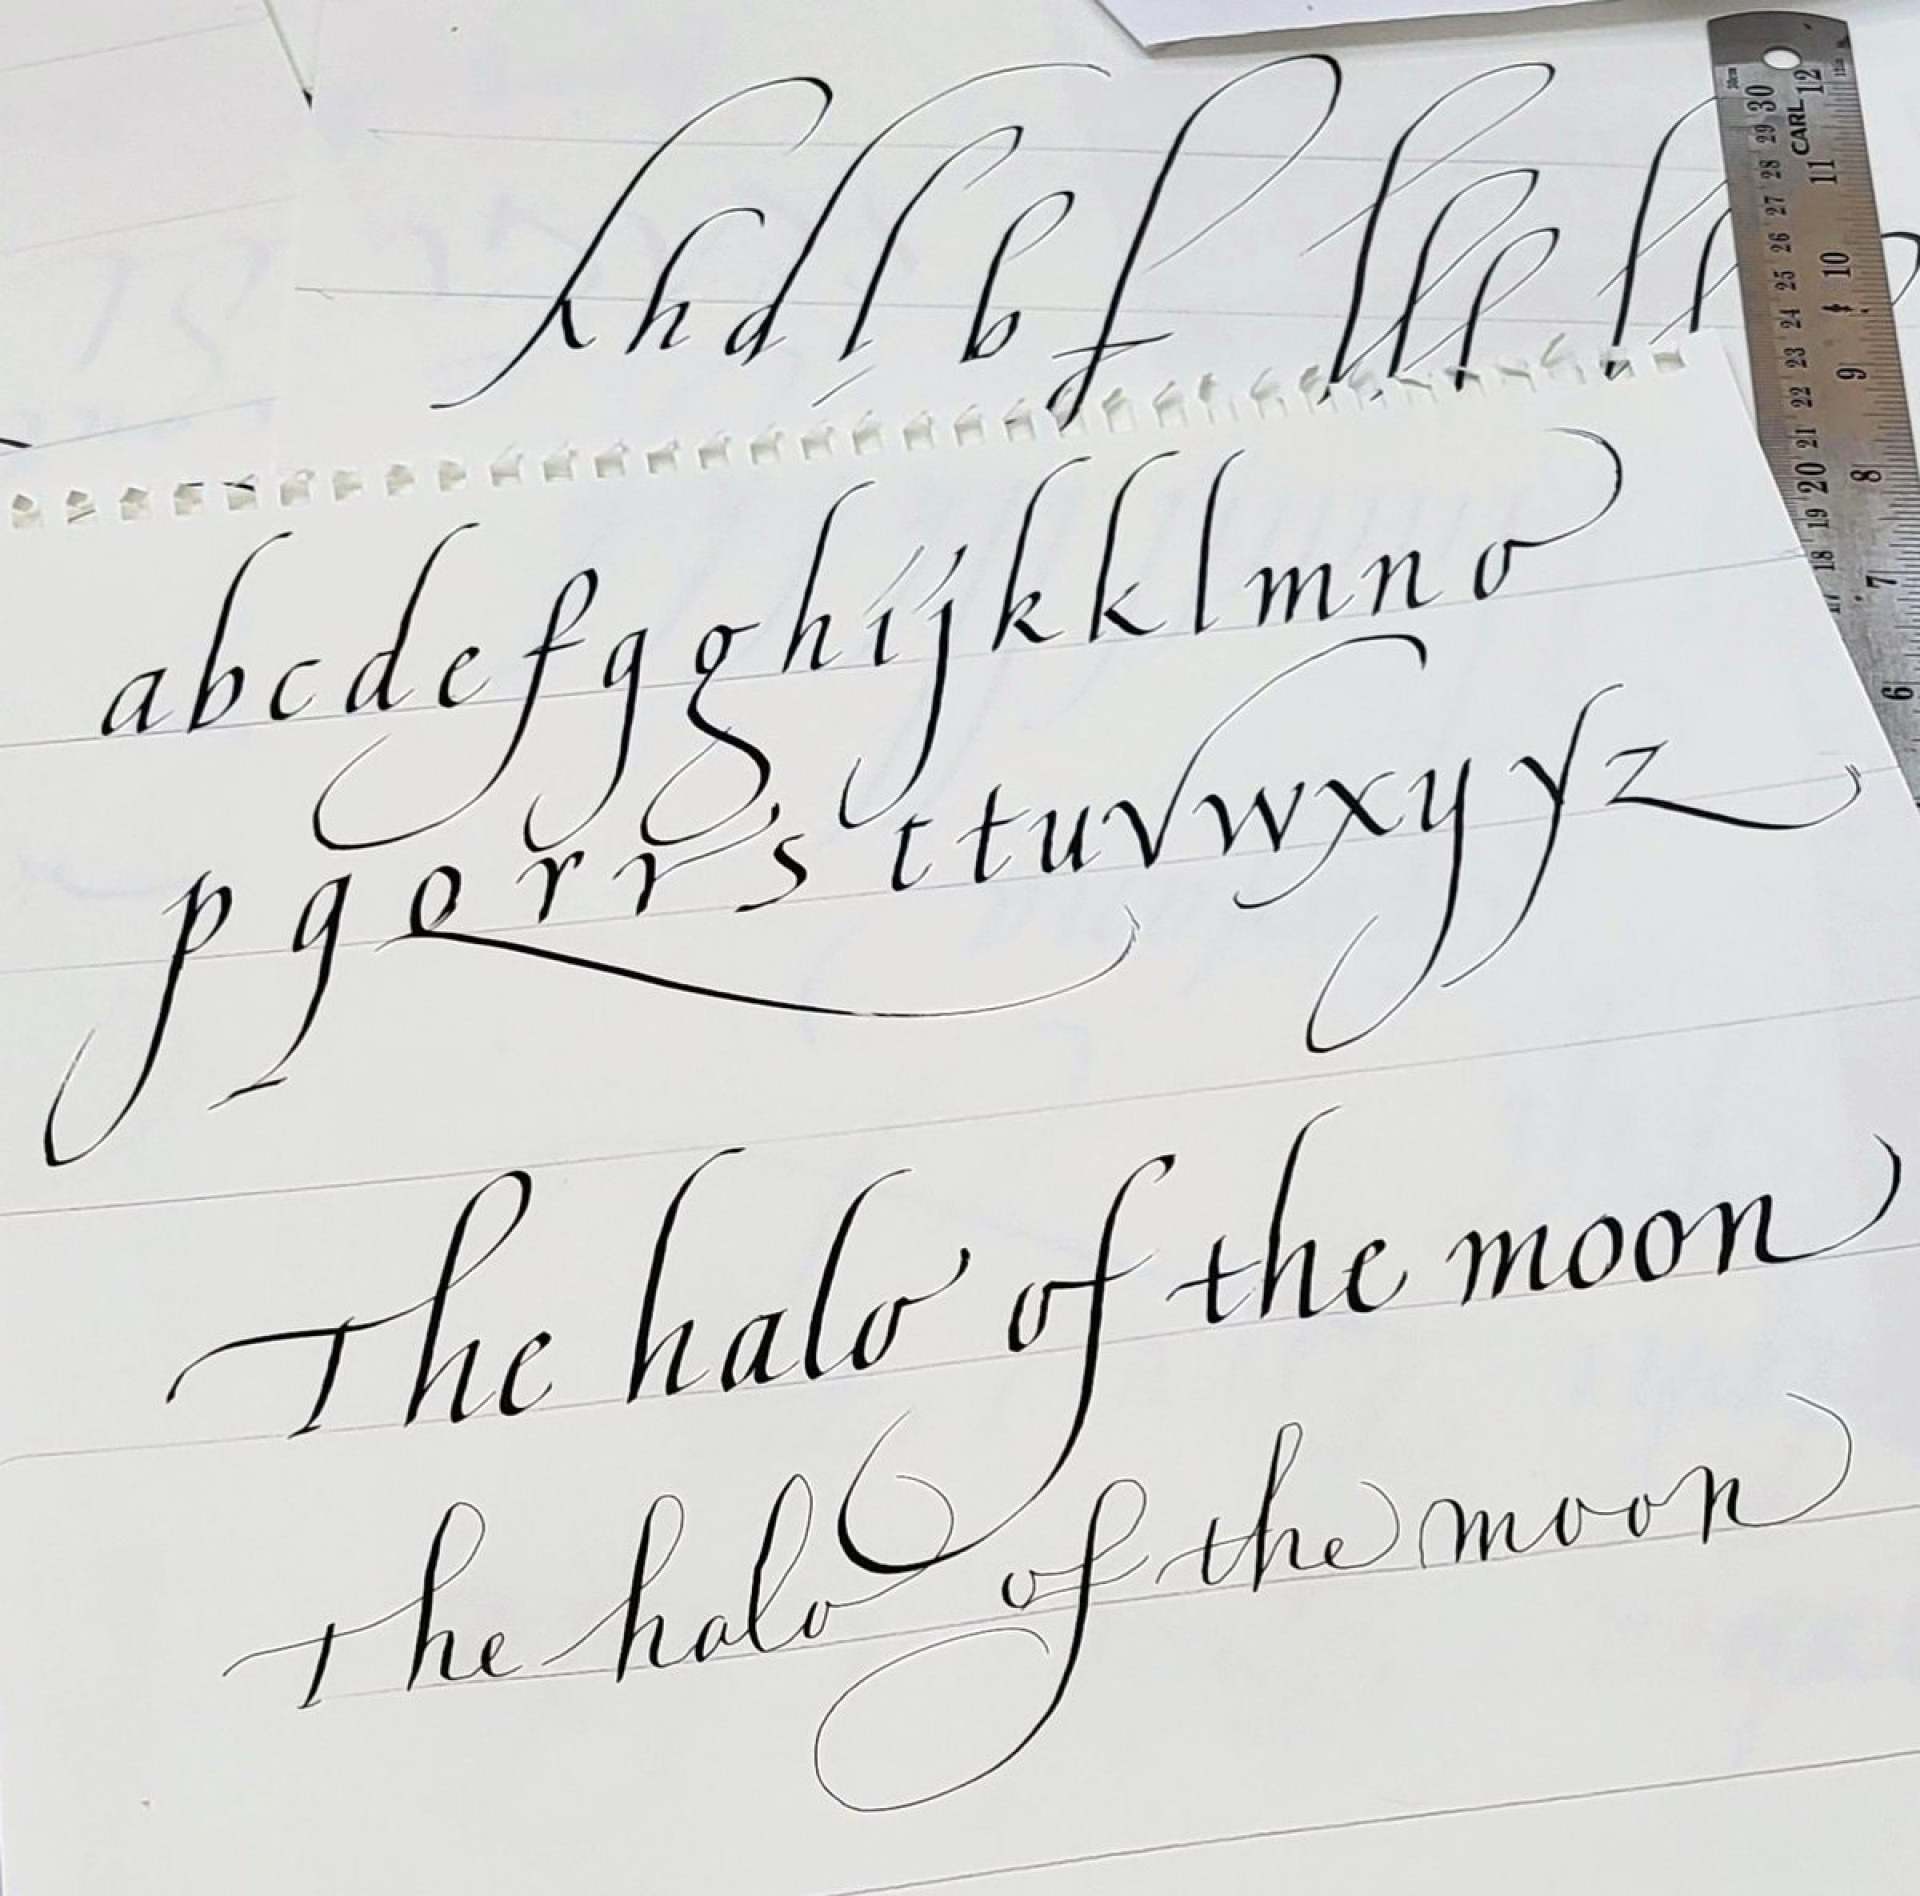 h h d l b f l l l l l
a b c d e f g g h i j k k l m n o
p q q r r s t t u v w x y y z
The halo of the moon
The halo of the moon
CARL
30 29 28 27 26 25 24 23 22 21 20 19 18 17
12 11 10 9 8 7 6